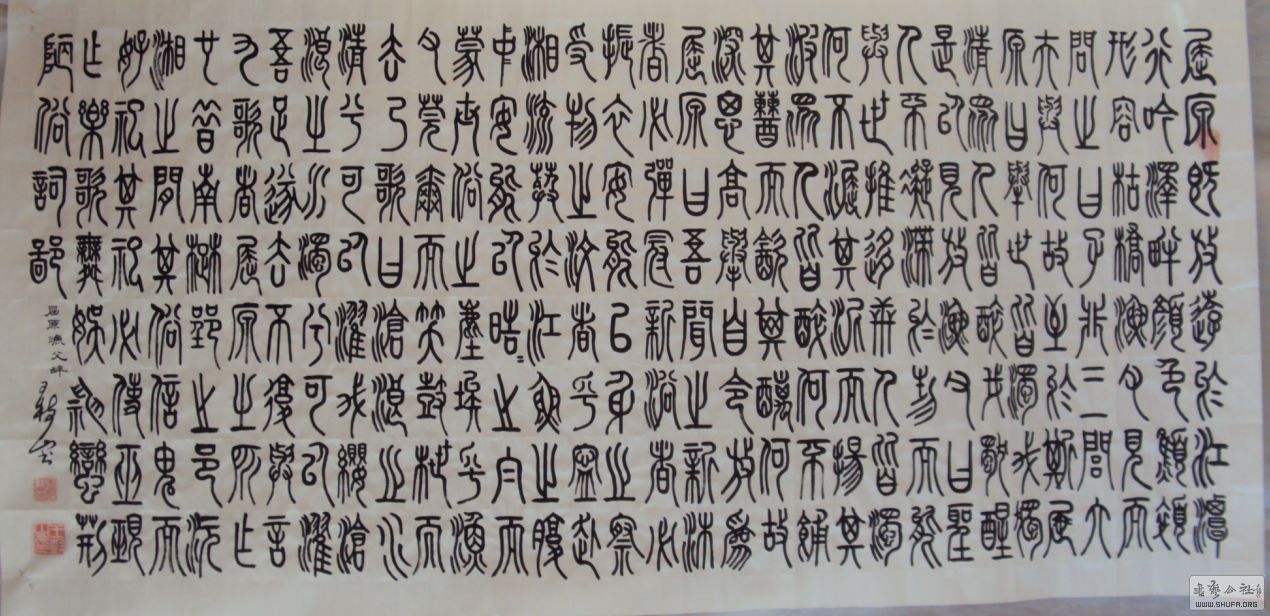 屈原既放遊於江潭
行吟澤畔顏色顦顇
形容枯槁漁父見而
問之曰子非三閭大
夫與何故至於斯屈
原曰舉世皆濁我獨
清眾人皆醉我獨醒
是以見放漁父曰聖
人不凝滯於物而能
與世推移并人皆濁
何不淈其泥而揚其
波眾人皆醉何不餔
其糟而歠其醨何故
深思高舉自令放為
屈原曰吾聞之新沐
者必彈冠新浴者必
振衣安能以身之察
受物之汶者乎寧赴
湘流葬於江魚之腹
中安能以晧〻之白而
蒙世俗之塵埃乎漁
父莞爾而笑鼓枻而
去乃歌曰滄浪之水
清兮可以濯我纓滄
浪之水濁兮可以濯
吾足遂去不復與言
九歌者屈原之所作
也昔南楚郢之邑沅
湘之間其俗信鬼而
好祀其祀必使巫覡
作樂歌舞娛神蠻荊
陋俗詞鄙
屈原漁父辭
書藝公社
WWW.SHUFA.ORG